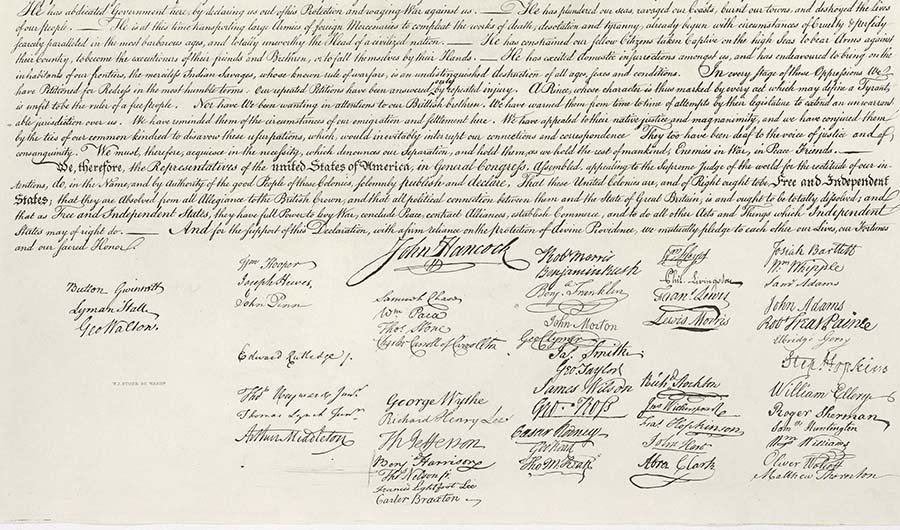 He has abdicated Government here, by declaring us out of his Protection and waging War against us. — He has plundered our seas, ravaged our Coasts, burnt our towns, and destroyed the lives
of our people. — He is at this time transporting large Armies of foreign Mercenaries to compleat the works of death, desolation and tyranny, already begun with circumstances of Cruelty & perfidy
scarcely paralleled in the most barbarous ages, and totally unworthy the Head of a civilized nation. — He has constrained our fellow Citizens taken Captive on the high Seas to bear Arms against
their Country, to become the executioners of their friends and Brethren, or to fall themselves by their Hands. — He has excited domestic insurrections amongst us, and has endeavoured to bring on the
inhabitants of our frontiers, the merciless Indian Savages, whose known rule of warfare, is an undistinguished destruction of all ages, sexes and conditions. In every stage of these Oppressions We
have Petitioned for Redress in the most humble terms: Our repeated Petitions have been answered only by repeated injury. A Prince, whose character is thus marked by every act which may define a Tyrant,
is unfit to be the ruler of a free people. Nor have We been wanting in attentions to our Brittish brethren. We have warned them from time to time of attempts by their legislature to extend an unwarrant-
able jurisdiction over us. We have reminded them of the circumstances of our emigration and settlement here. We have appealed to their native justice and magnanimity, and we have conjured them
by the ties of our common kindred to disavow these usurpations, which, would inevitably interrupt our connections and correspondence They too have been deaf to the voice of justice and of
consanguinity. We must, therefore, acquiesce in the necessity, which denounces our Separation, and hold them, as we hold the rest of mankind, Enemies in War, in Peace Friends. —
We, therefore, the Representatives of the united States of America, in General Congress, Assembled, appealing to the Supreme Judge of the world for the rectitude of our in-
tentions, do, in the Name, and by authority of the good People of these Colonies, solemnly publish and declare, That these United Colonies are, and of Right ought to be Free and Independent
States; that they are Absolved from all Allegiance to the British Crown, and that all political connection between them and the State of Great Britain, is and ought to be totally dissolved; and
that as Free and Independent States, they have full Power to levy War, conclude Peace, contract Alliances, establish Commerce, and to do all other Acts and Things which Independent
States may of right do. — And for the support of this Declaration, with a firm reliance on the protection of divine Providence, we mutually pledge to each other our Lives, our Fortunes
and our sacred Honor.
Button Gwinnett
Lyman Hall
Geo Walton.
W. J. STONE SC. WASHN.
Wm Hooper
Joseph Hewes,
John Penn
Edward Rutledge /.
Thos Heyward Junr.
Thomas Lynch Junr.
Arthur Middleton
John Hancock
Samuel Chase
Wm Paca
Thos Stone
Charles Carroll of Carrollton
George Wythe
Richard Henry Lee
Th Jefferson
Benj Harrison
Thos Nelson jr.
Francis Lightfoot Lee
Carter Braxton
Robt Morris
Benjamin Rush
Benja Franklin
John Morton
Geo Clymer
Jas. Smith
Geo. Taylor
James Wilson
Geo. Ross
Caesar Rodney
Geo Read
Tho M:Kean
Wm Floyd
Phil. Livingston
Frans. Lewis
Lewis Morris
Richd. Stockton
Jno Witherspoon
Fras. Hopkinson
John Hart
Abra Clark
Josiah Bartlett
Wm Whipple
Saml Adams
John Adams
Robt Treat Paine
Elbridge Gerry
Step. Hopkins
William Ellery
Roger Sherman
Saml Huntington
Wm Williams
Oliver Wolcott
Matthew Thornton